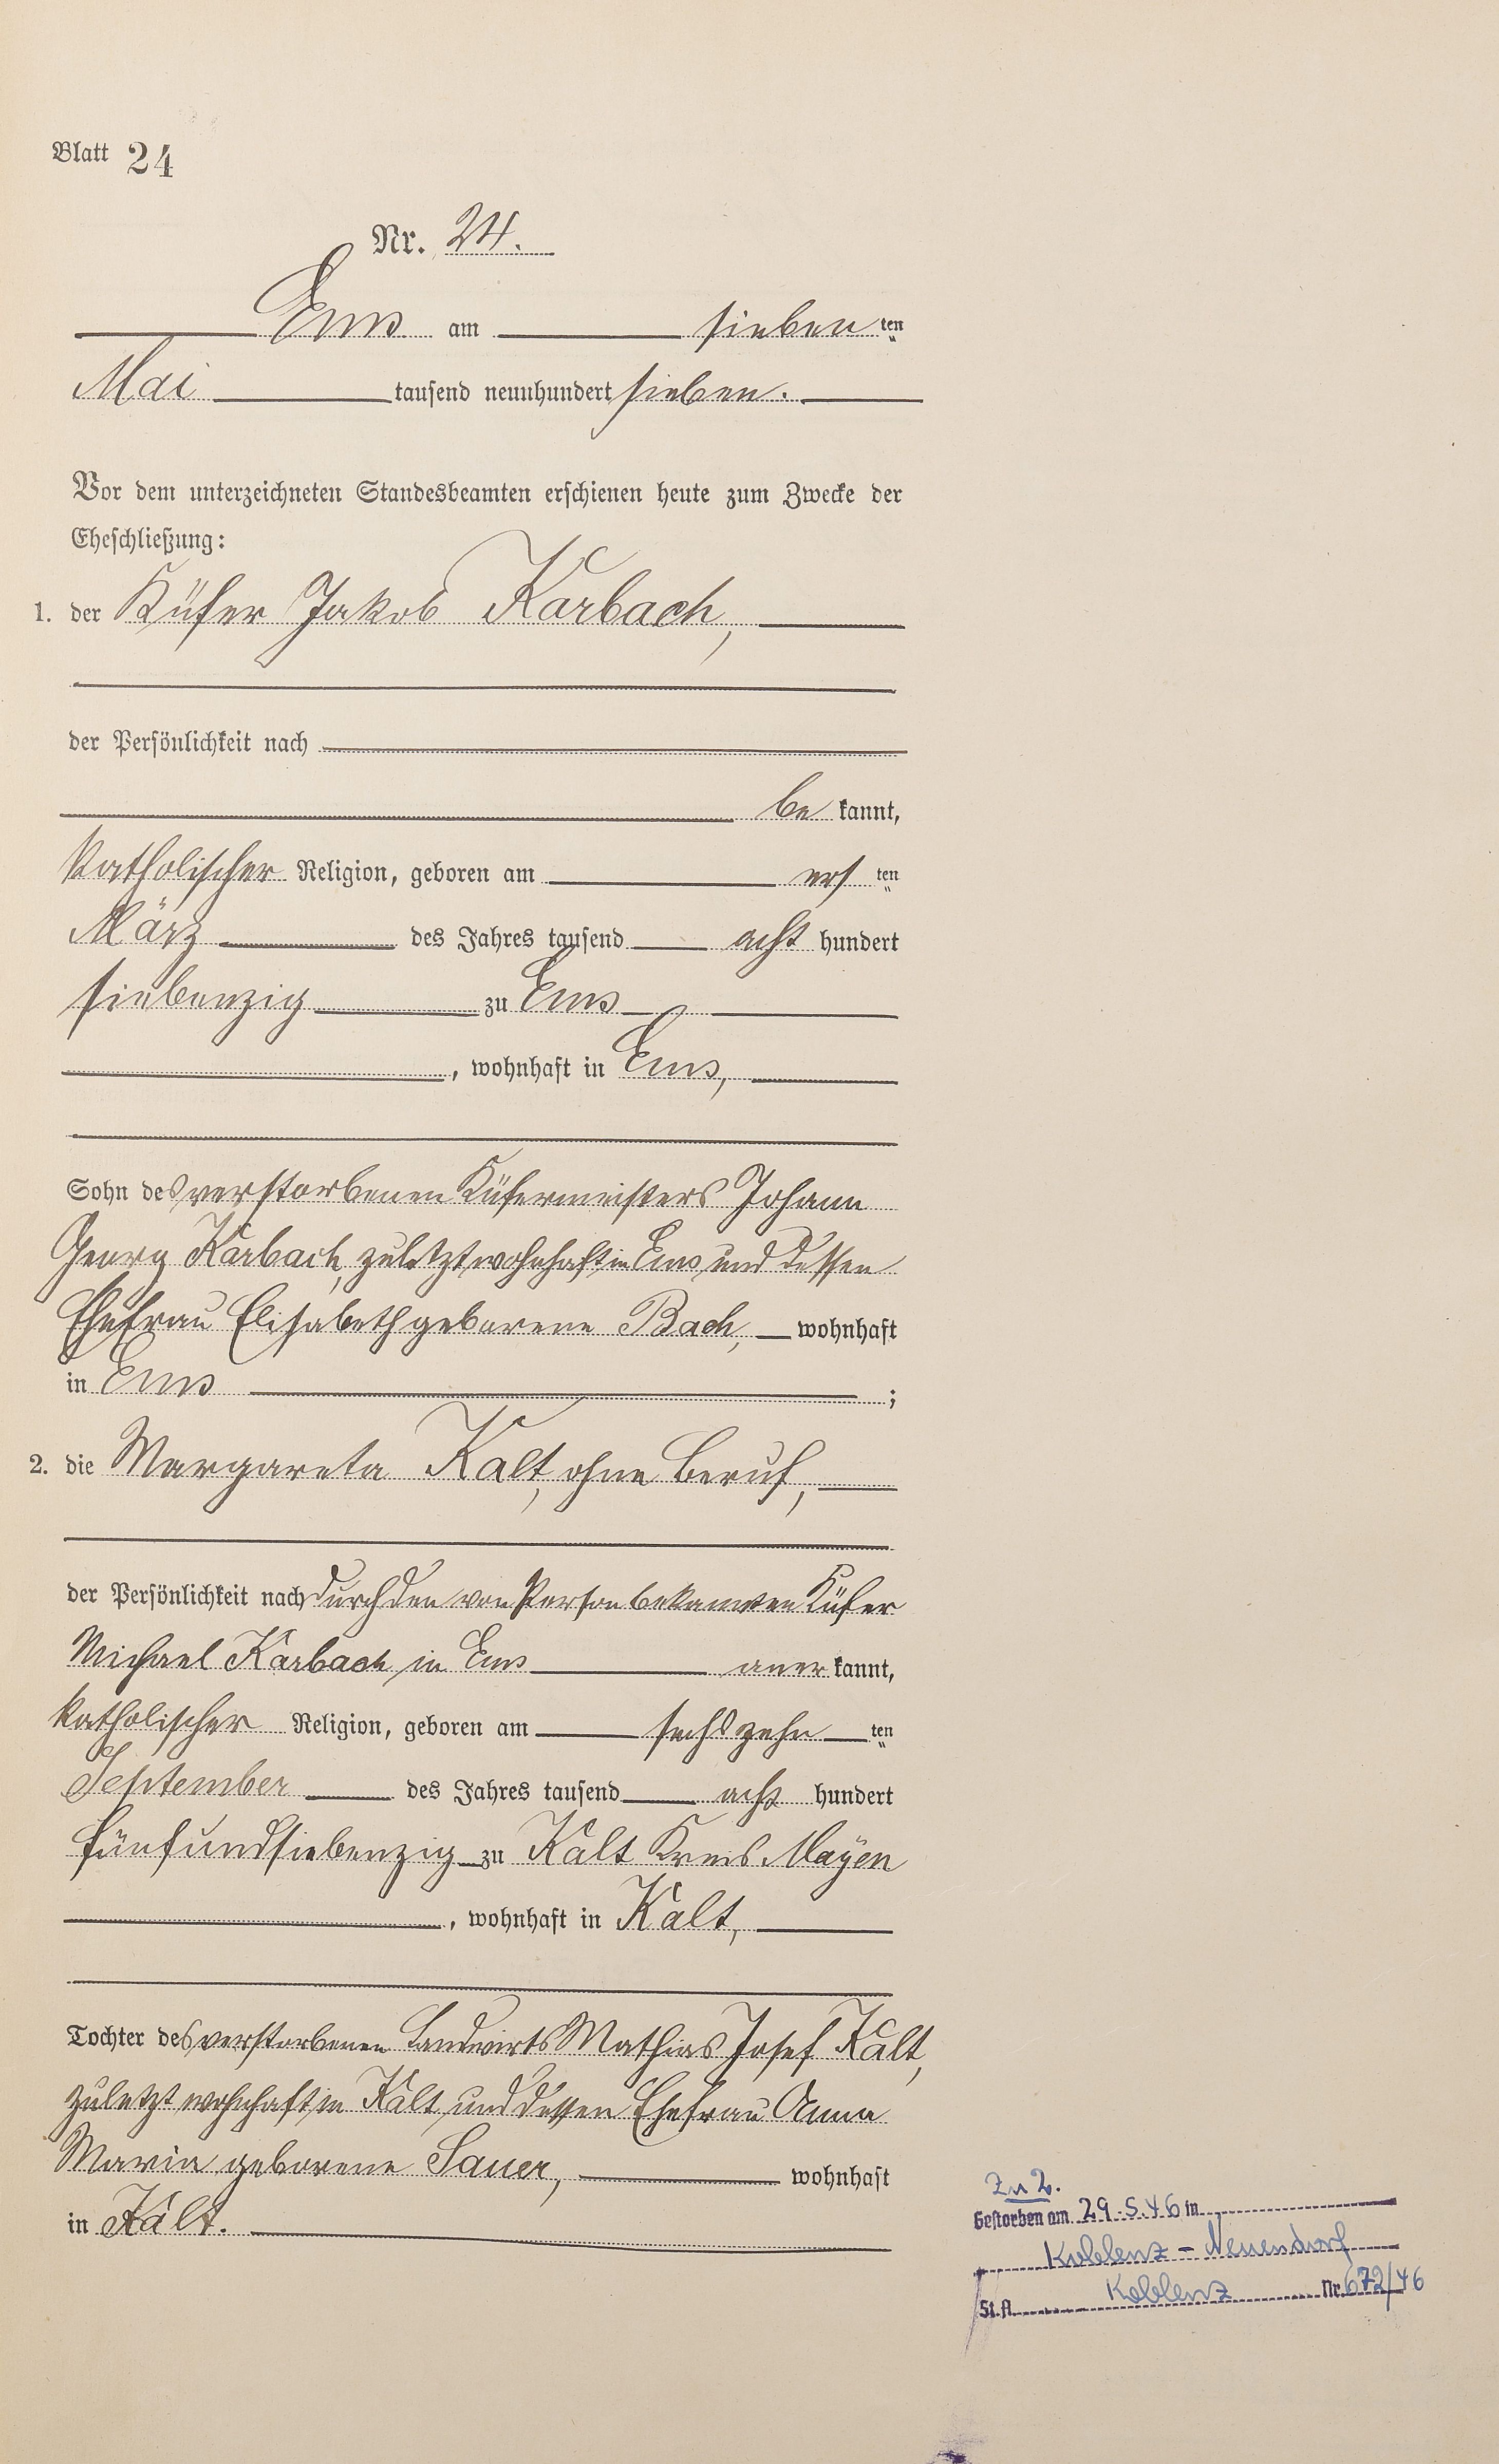 Blatt 24
Nr. 24.
Ems am sieben ten
Mai tausend neunhundert sieben.
Vor dem unterzeichneten Standesbeamten erschienen heute zum Zwecke der
Eheschließung:
1. der Küfer Jakob Karbach,
der Persönlichkeit nach
be kannt,
katholischer Religion, geboren am ers ten
März des Jahres tausend acht hundert
siebenzig zu Ems
, wohnhaft in Ems,
Sohn des verstorbenen Küfermeisters Johann
Georg Karbach, zuletzt wohnhaft in Ems und dessen
Ehefrau Elisabeth geborene Bach, wohnhaft
in Ems ;
2. die Margareta Kalt, ohne Beruf,
der Persönlichkeit nach durch den von Person bekannten Küfer
Michael Karbach in Ems aner kannt,
katholischer Religion, geboren am sechszehn ten
September des Jahres tausend acht hundert
fünfundsiebenzig zu Kalt Kreis Mayen
, wohnhaft in Kalt,
Tochter des verstorbenen Landwirts Mathias Josef Kalt,
zuletzt wohnhaft in Kalt und dessen Ehefrau Anna
Maria geborene Sauer, wohnhaft
in Kalt.
Zu 2.
Gestorben am 29.5.46 in
Koblenz - Neuendorf
St.A. Koblenz Nr. 672/46